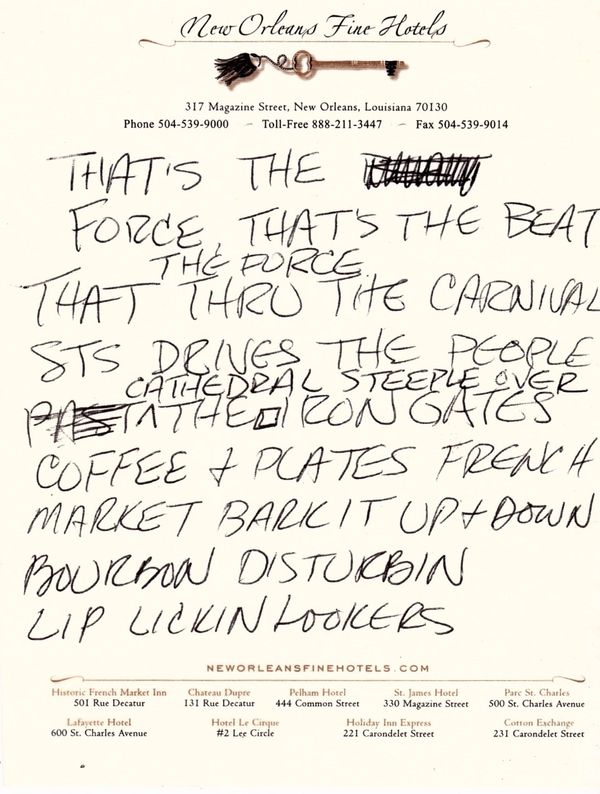 New Orleans Fine Hotels
317 Magazine Street, New Orleans, Louisiana 70130
Phone 504-539-9000 – Toll-Free 888-211-3447 – Fax 504-539-9014
THAT'S THE
FORCE, THAT'S THE BEAT
THE FORCE
THAT THRU THE CARNIVAL
STS DRIVES THE PEOPLE
CATHEDRAL STEEPLE OVER
THE IRON GATES
COFFEE + PLATES FRENCH
MARKET BARK IT UP + DOWN
BOURBON DISTURBIN
LIP LICKIN LOOKERS
NEWORLEANSFINEHOTELS.COM
Historic French Market Inn Chateau Dupre Pelham Hotel St. James Hotel Parc St. Charles
501 Rue Decatur 131 Rue Decatur 444 Common Street 330 Magazine Street 500 St. Charles Avenue
Lafayette Hotel Hotel Le Cirque Holiday Inn Express Cotton Exchange
600 St. Charles Avenue #2 Lee Circle 221 Carondelet Street 231 Carondelet Street